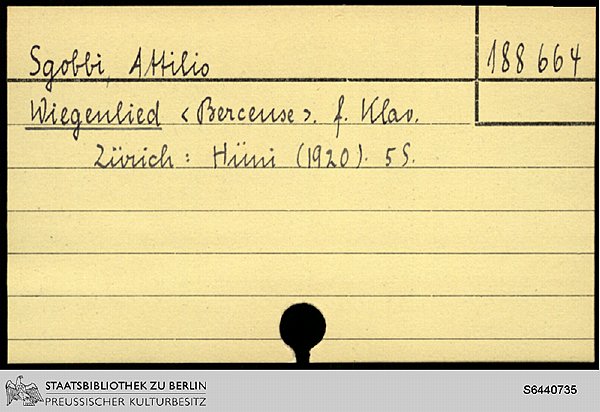 Sgobbi, Attilio
188 664
Wiegenlied <Berceuse>. f. Klav.
Zürich: Hüni (1920). 5 S.
STAATSBIBLIOTHEK ZU BERLIN
PREUSSISCHER KULTURBESITZ
S6440735